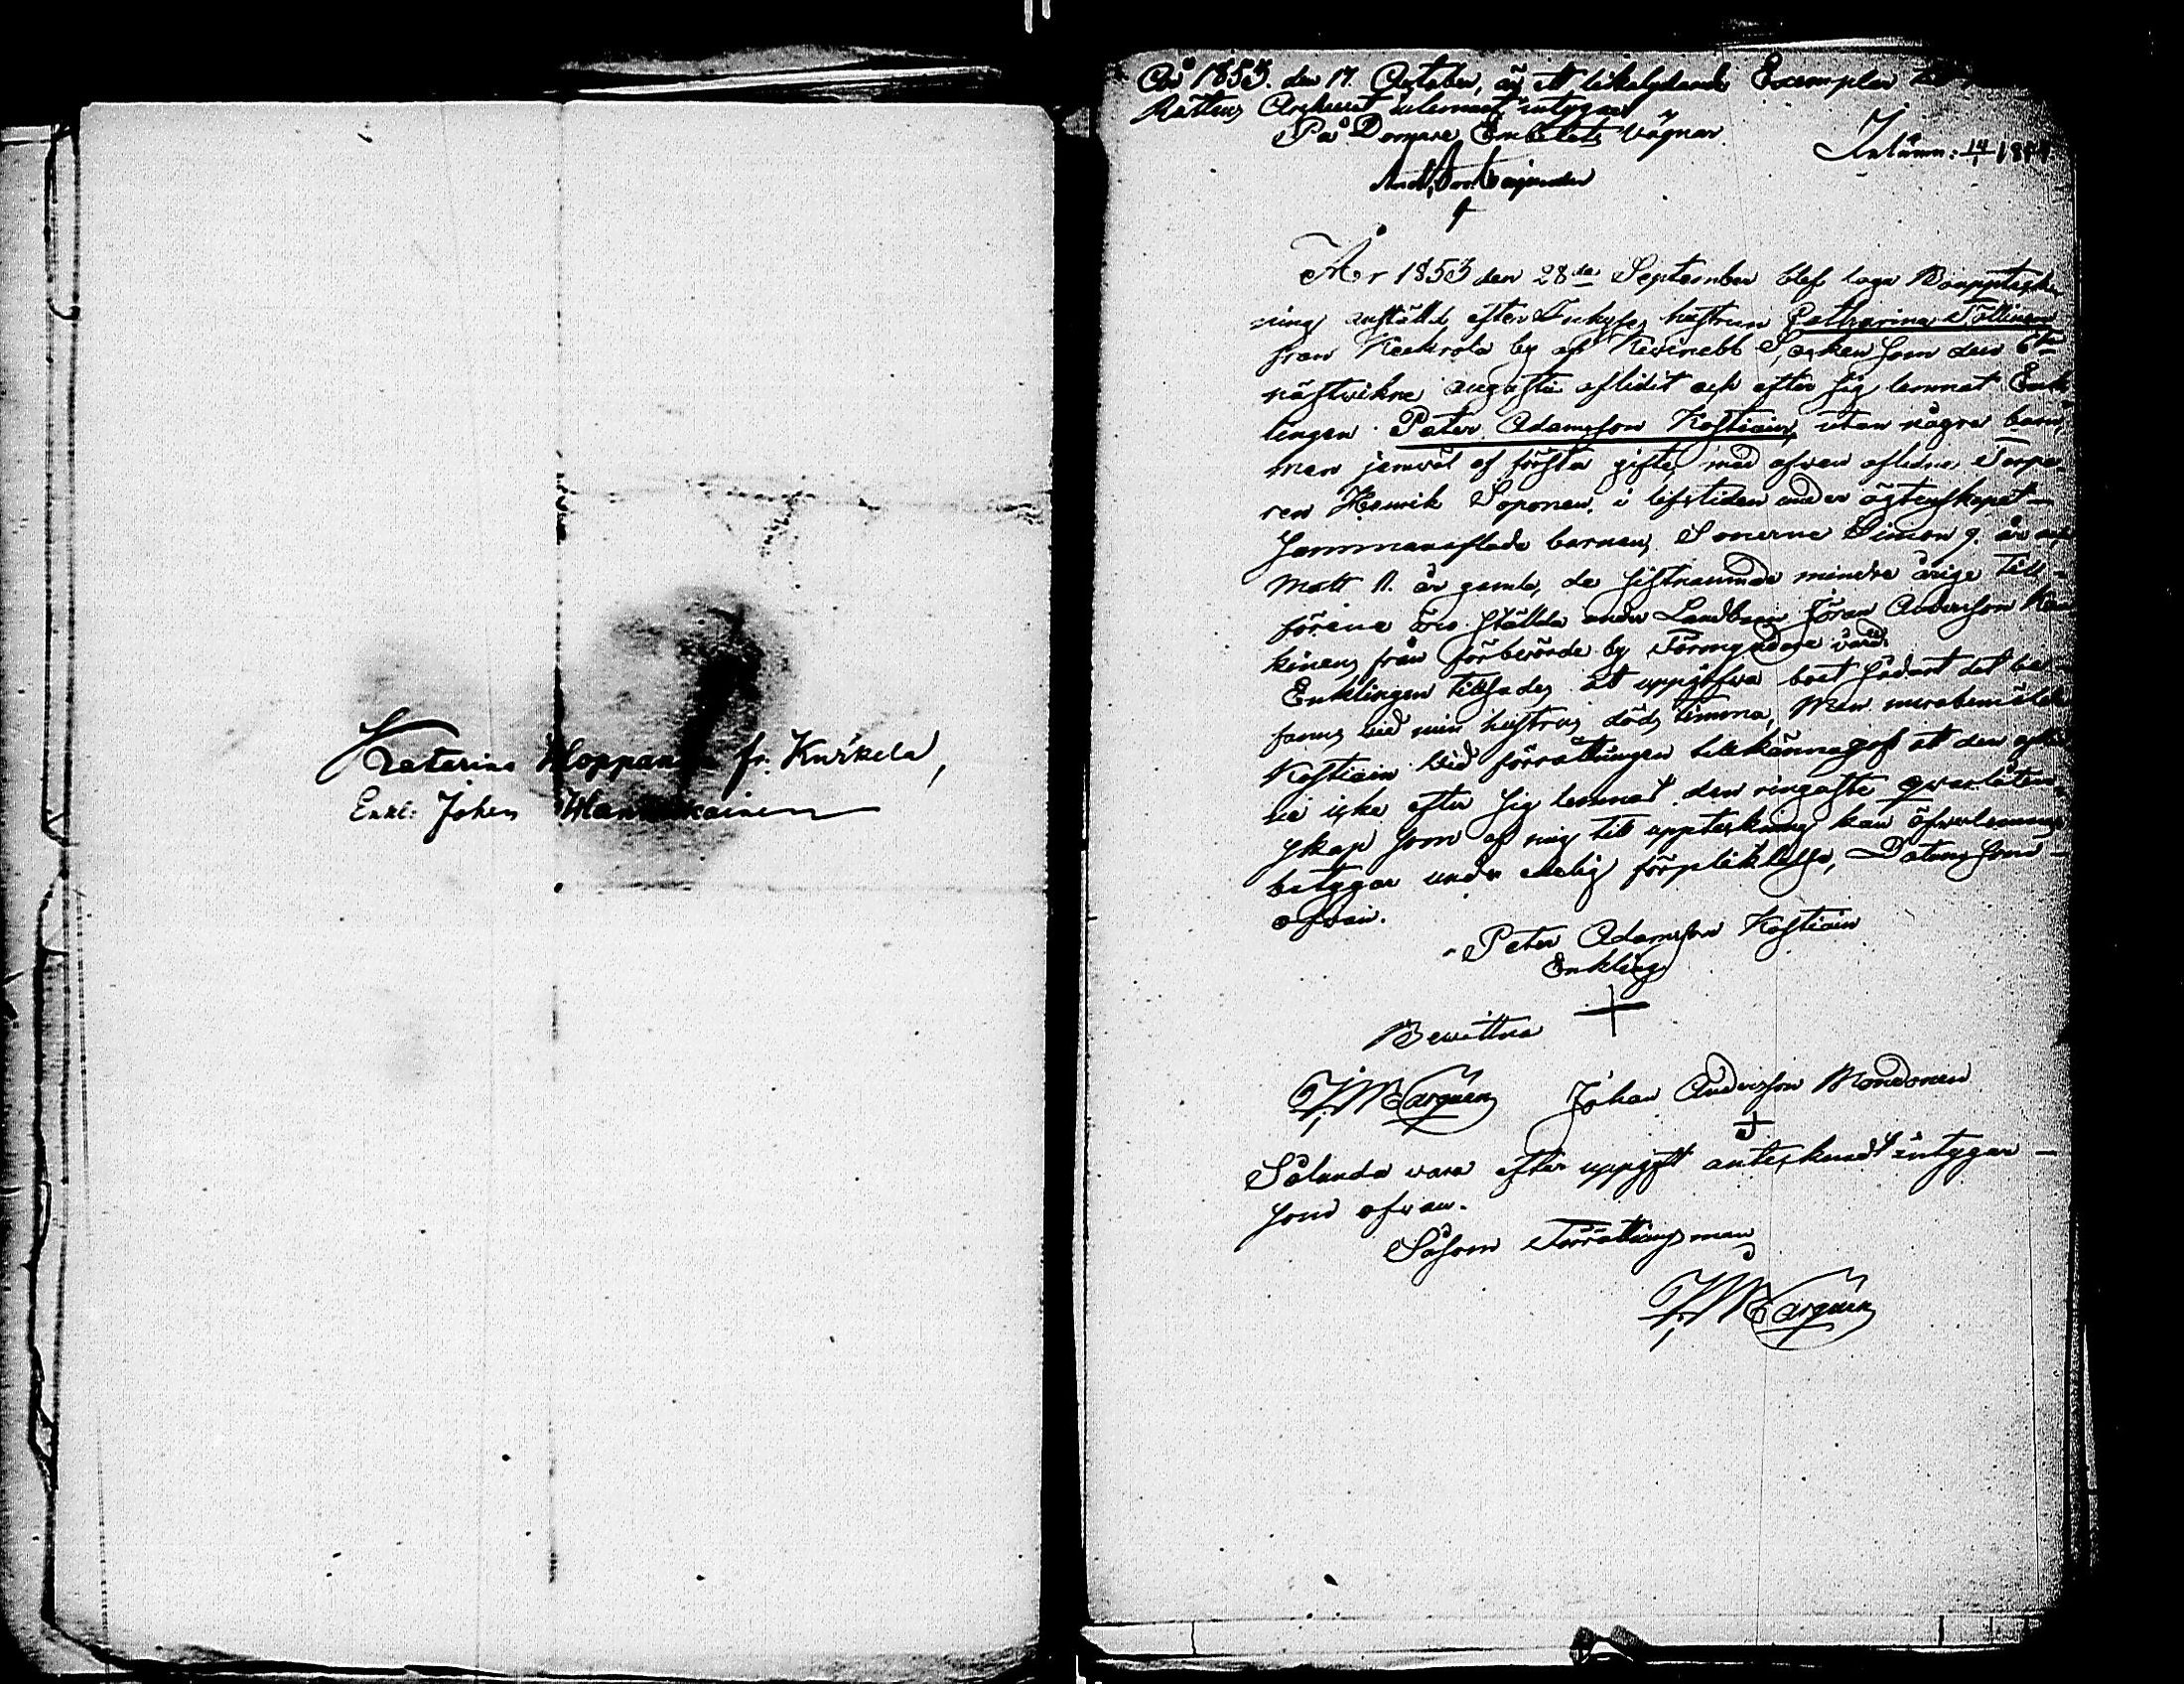 Katarina Hoppan fr. Kurkela,
Enkl: Johan
År 1853. den 17. October, är ett likalydande Exemplar till
Rättens Archivet inlemnat intygar
På Domare Embetets Vägnar
Inlämn: 14/1 18
År 1853 den 28de September blef laga Bouppteck
ning anställd efter Inhyses hustrun Catharina Töllinen
från Keekrola by af Kevinebb Socken som den 6te
nästvikne augusti aflidit och efter sig lemnat Enk
lingen Peter Adamsson Kostiain, utan några barn,
men jemväl af första gifte, med ofvan aflidne Torpa
ren Henrik Soponen, i lifstiden under ägtenskapet
sammanaflade barnen, Sonerne Simon 9. år och
Matt 11. år gamla, de sistnämnde mindre årige till
förene äro ställda under Landbon Göran Andersson
kinens från förberörde by Förmyndare vård.
Enklingen tillsades att uppgifva boet sådant det be
fanns vid min hustrus döds timma, Men merabemälde
Kostiain vid förrättningen tillkännagaf att den aflid
ne icke efter sig lemnat den ringaste qvarlåten
skap som af mig till uppteckning kan öfverlemnas
betygar under edelig förpliktelse, Datum som
ofvan.
Peter Adamsson Kostiain
Enkling
Bewittna
Johan Andersson Mondonen
Sålunda vara efter uppgift antecknadt intygar
som ofvan.
Såsom Förrättningsman